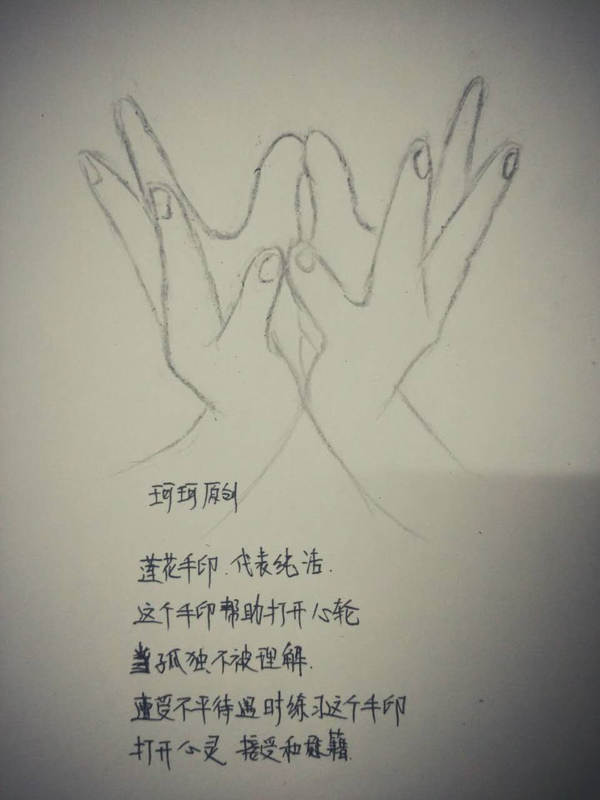 珂珂原创
莲花手印.代表纯洁.
这个手印帮助打开心轮
当孤独不被理解.
遭受不平待遇时练习这个手印
打开心灵 接受和慰籍.